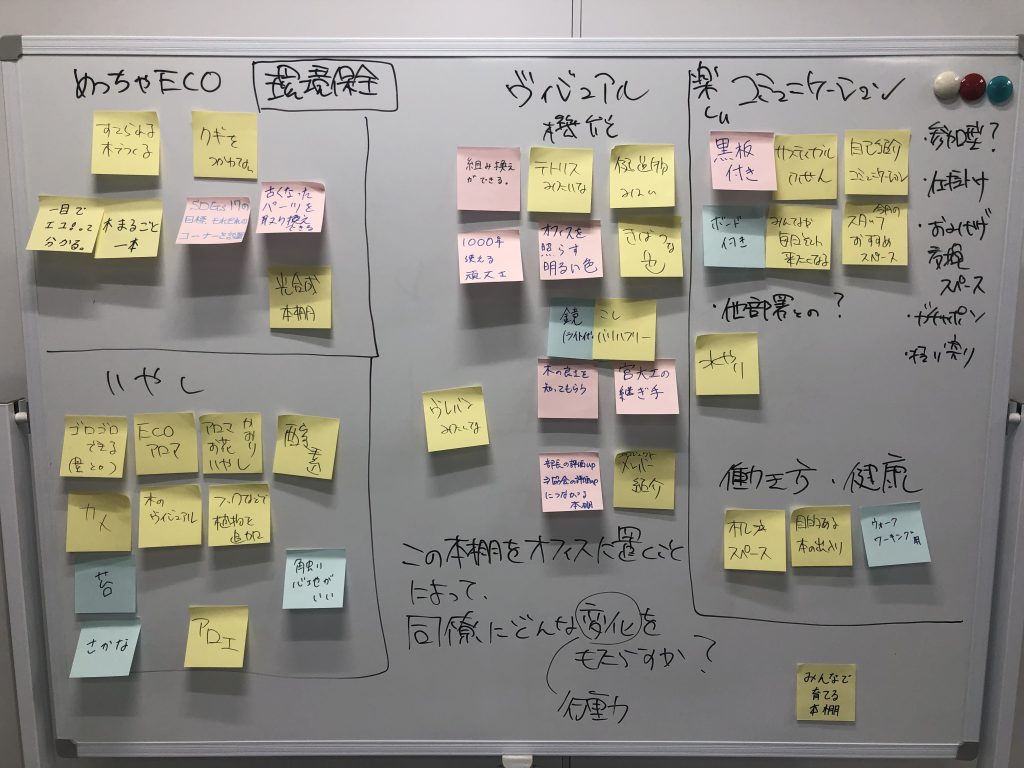 めっちゃECO
環境保全
すてられる
木でつくる
クギを
つかわない
一目で
エコだって
分かる。
木まるごと
一本
SDGs17の
目標 それぞれの
コーナーを設置
古くなった
パーツを
取り換え
できる
光合成
本棚
いやし
ゴロゴロ
できる
ECO
アロマ
アロマ
お花
いやし
かおり
酸素
カメ
木の
ヴィジュアル
植物を
苔
触り
心地が
いい
さかな
アロエ
ヴィジュアル
機能
組み換え
ができる。
テトリス
みたいな
建造物
みたい
1000年
使える
頑丈
オフィスを
照らす
明るい色
きばつな
色
鏡
バリバリフリー
木の良さを
知ってもらう
宮大工の
継ぎ手
ヴレバン
みたいな
部長の評価up
⇒協会の評価up
につながる
本棚
プロジェクト
メンバー
紹介
この本棚をオフィスに置くこと
によって、
同僚にどんな変化を
もたらすか?
行動力
楽しい
コミュニケーション
黒板
付き
サスティナブル
ふせん
自己紹介
コミュニケーション
ボンド
付き
みんなが
毎日
来たくなる
今月の
スタッフ
おすすめ
スペース
・他部署との?
水やり
・参加型?
・仕掛け
・おみやげ
交換
スペース
・ガチャポン
働き方・健康
スペース
目的ある
本の出入り
ウォーク
ワーキング用
みんなで
育てる
本棚